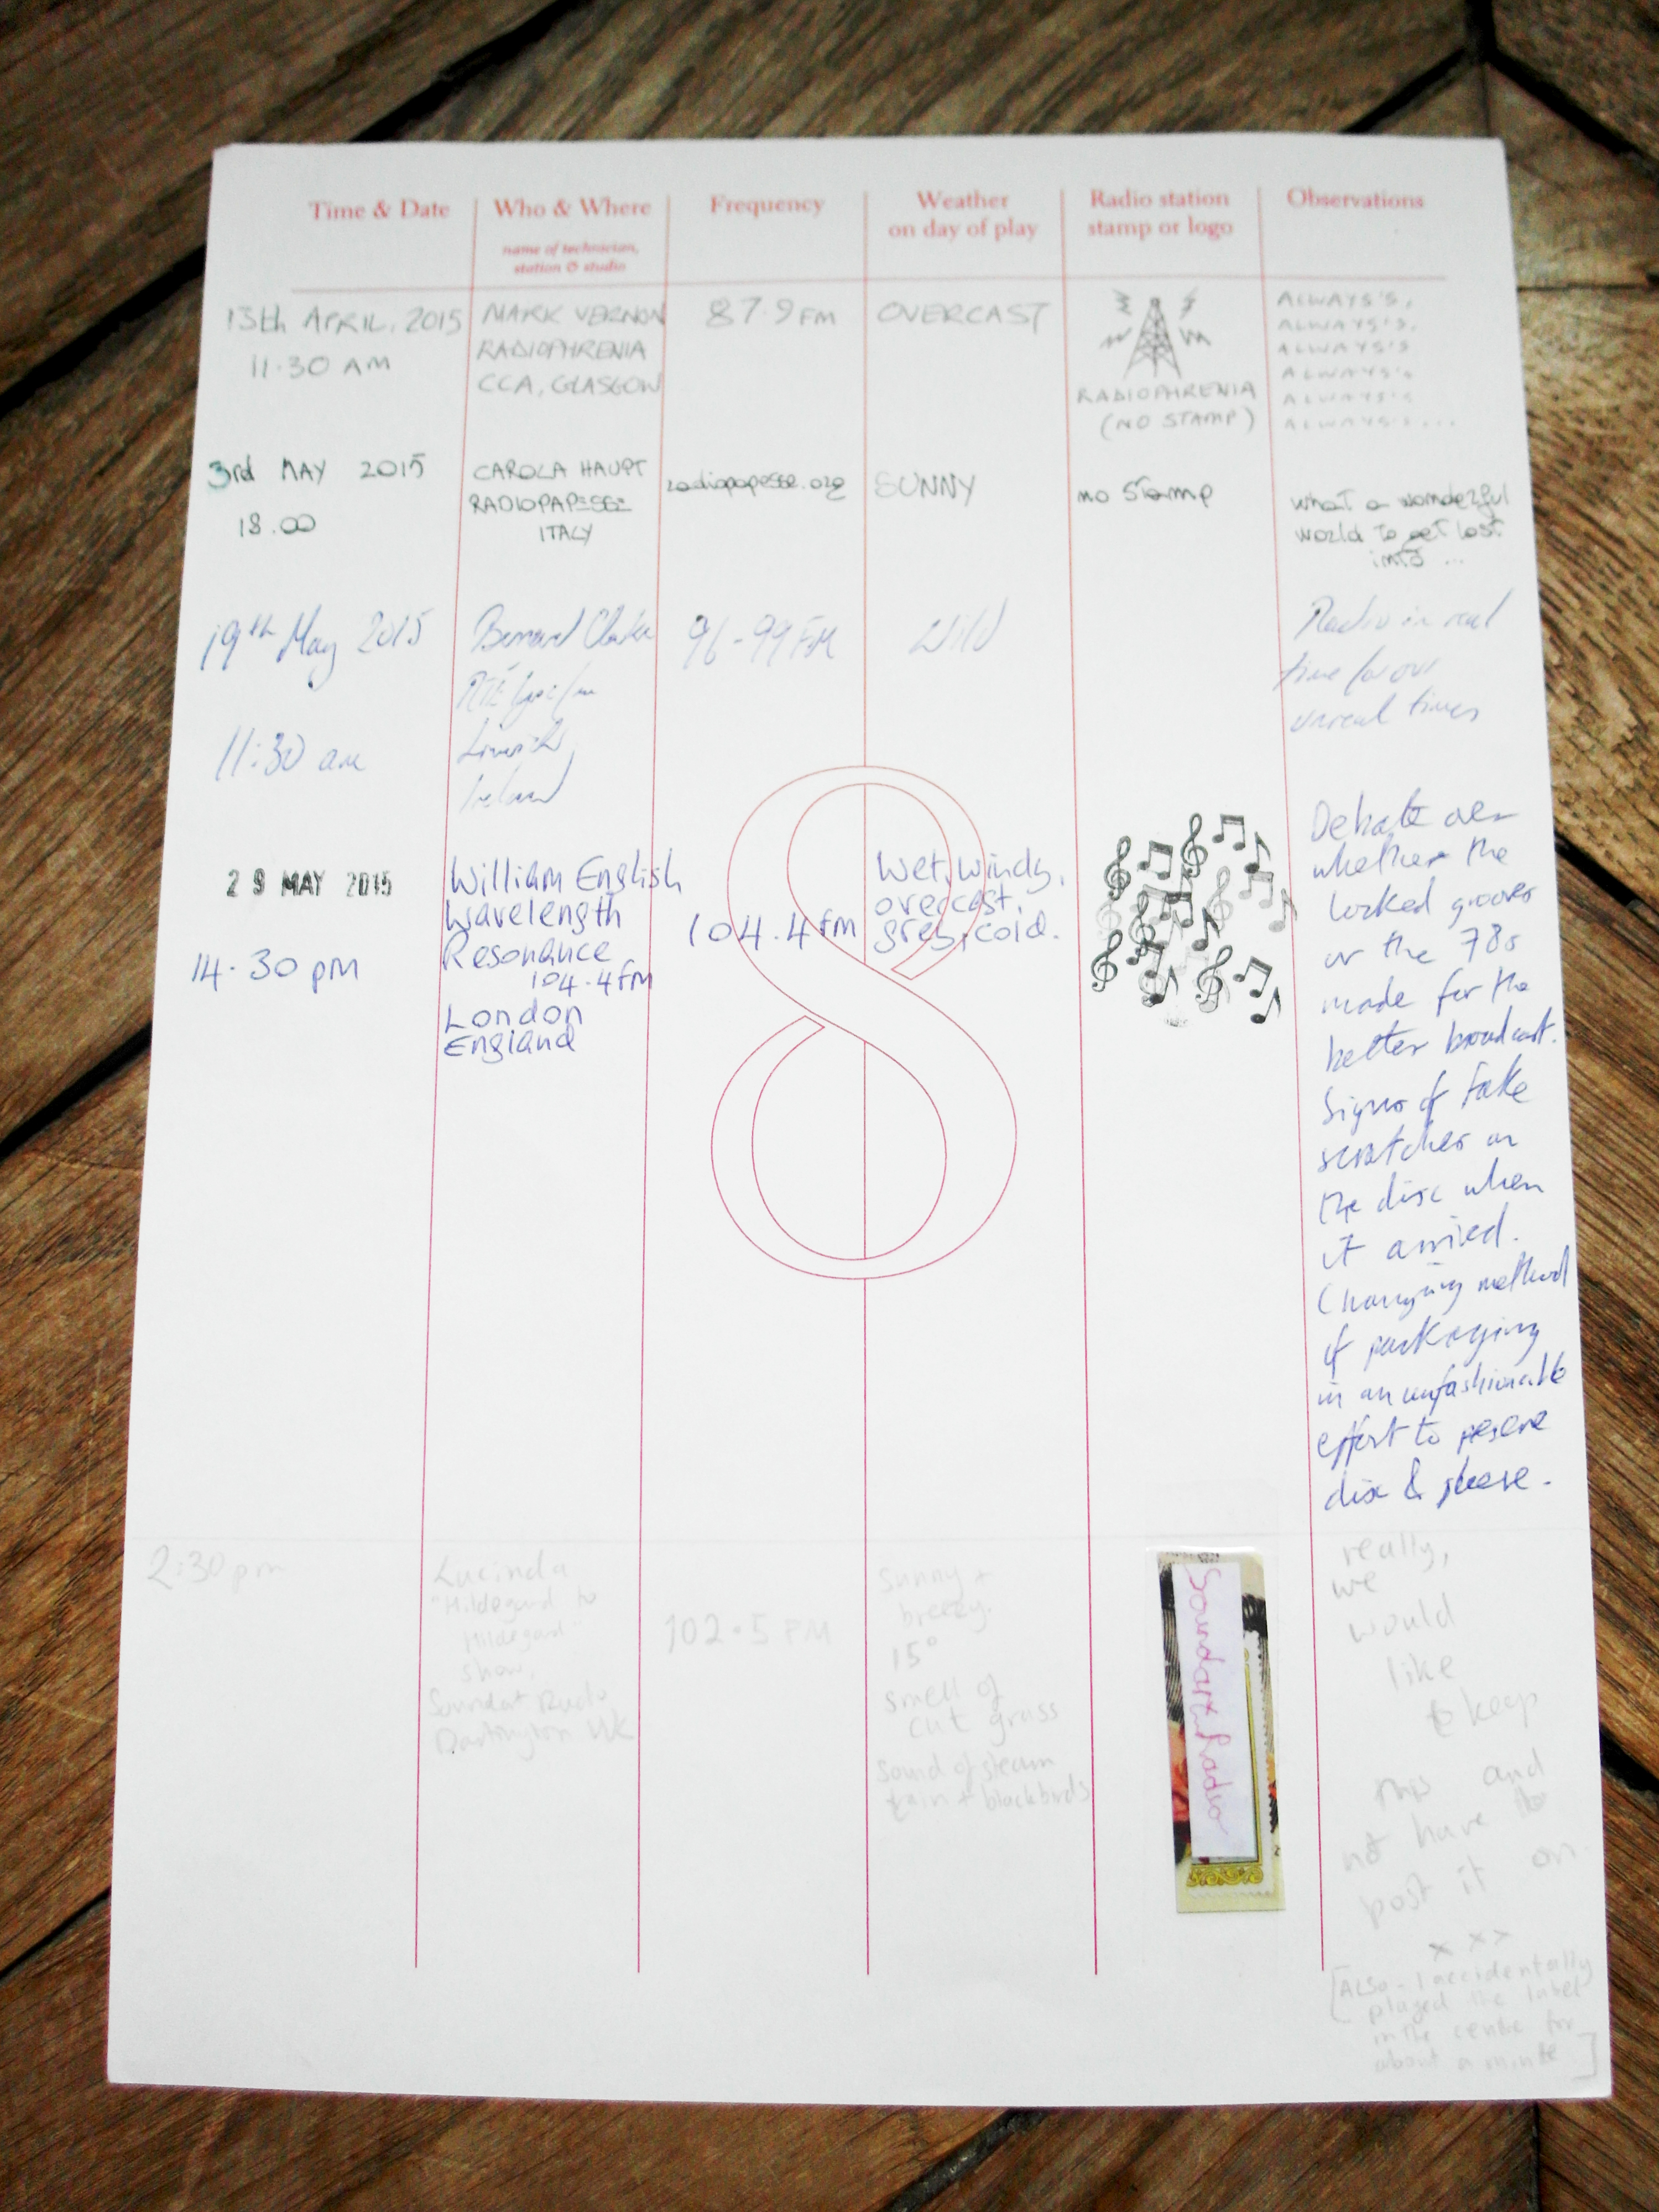 Time & Date
Who & Where
name of technician,
station & studio
Frequency
Weather
on day of play
Radio station
stamp or logo
Observations
13th APRIL, 2015
11.30 AM
MARK VERNON
RADIOPHRENIA
CCA, GLASGOW
87.9 FM
OVERCAST
RADIOPHRENIA
(NO STAMP)
ALWAYS'S,
ALWAYS'S,
ALWAYS'S
ALWAYS'S
ALWAYS'S
ALWAYS'S...
3rd MAY 2015
18.00
CAROLA HAUPT
RADIOPAPESSE
ITALY
radiopapesse.org
SUNNY
no stamp
what a wonderful
world to get lost
into ...
19th May 2015
11:30 am
Bernard Clarke
RTÉ lyric fm
Limerick
Ireland
96-99 FM
Wild
Radio in real
time for our
unreal times
29 MAY 2015
14.30 pm
William English
Wavelength
Resonance
104.4 fm
London
England
104.4 fm
Wet, windy,
overcast,
grey, cold.
Debate over
whether the
locked grooves
or the 78s
made for the
better broadcast.
Signs of fake
scratches on
the disc when
it arrived.
Changing method
of packaging
in an unfashionable
effort to preserve
disc & sleeve.
8
2:30 pm
Lucinda
"Hildegard to
Hildegard"
show,
Soundart Radio
Dartington UK
102.5 FM
Sunny +
breezy.
15°
smell of
cut grass
sound of steam
train + blackbirds
Soundart Radio
really,
we
would
like
to keep
this and
not have to
post it on.
x x x
[ALSO - I accidentally
played the label
in the centre for
about a minute]